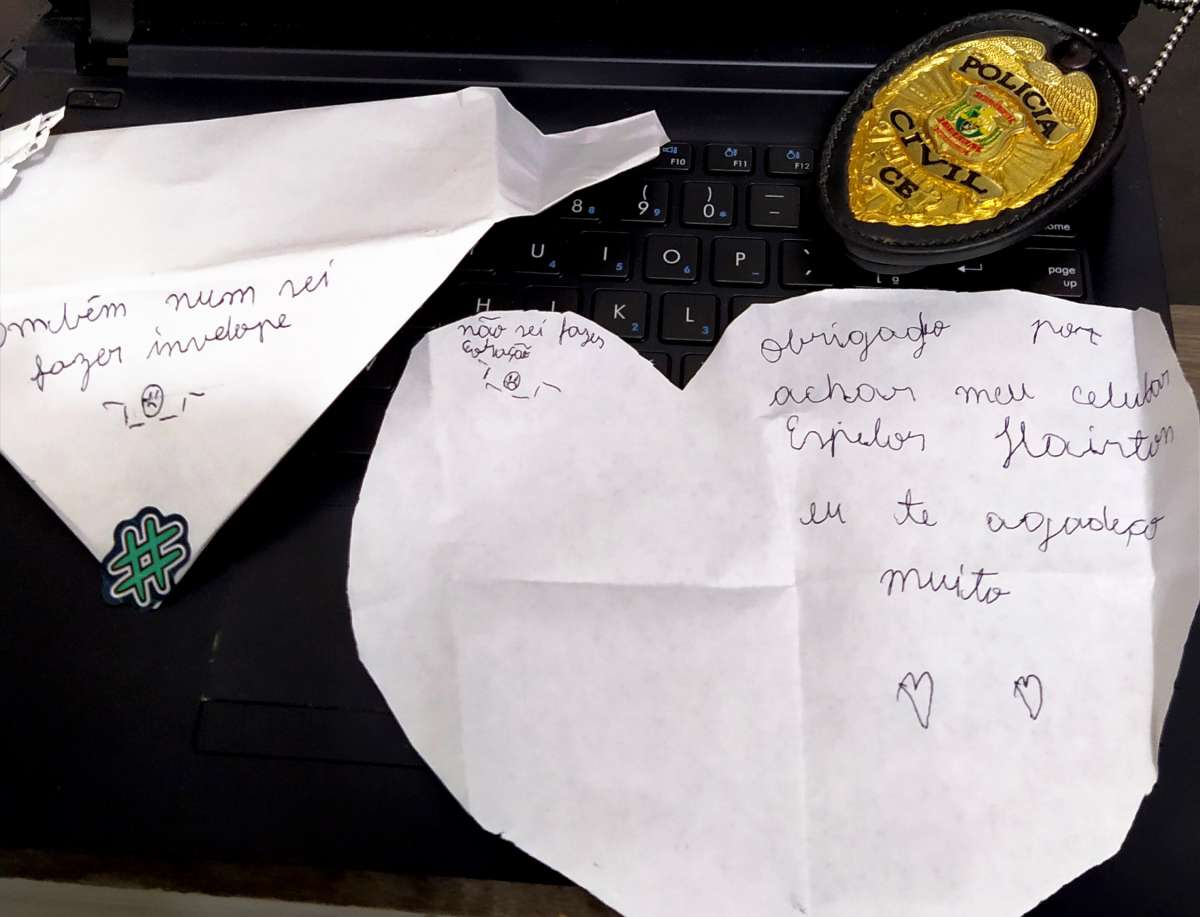 ombém num sei
fazer invelope
não sei fazer
coração
obrigado por
achar meu celular
Espetor Hairton
eu te agadeço
muito
POLICIA
CIVIL
CE
F10
F11
F12
( 8 8
9 9
) 0 *
U 4
I 5
O 6
P -
page
up
H
K 2
L 3
#